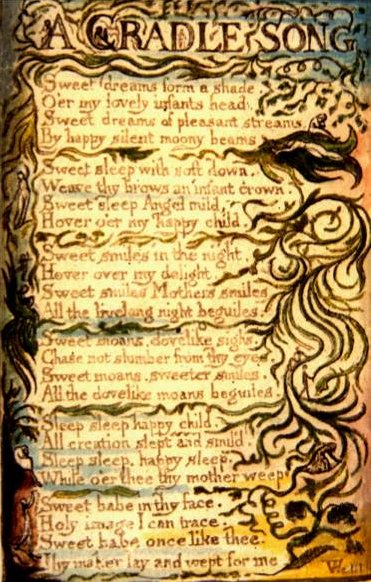 A CRADLE SONG
Sweet dreams form a shade.
Oer my lovely infants head.
Sweet dreams of pleasant streams.
By happy silent moony beams
Sweet sleep with soft down.
Weave thy brows an infant crown.
Sweet sleep Angel mild,
Hover oer my happy child.
Sweet smiles in the night.
Hover over my delight.
Sweet smiles Mothers smiles
All the livelong night beguiles.
Sweet moans, dovelike sighs,
Chase not slumber from thy eyes
Sweet moans, sweeter smiles.
All the dovelike moans beguiles.
Sleep sleep happy child.
All creation slept and smild.
Sleep sleep, happy sleep,
While oer thee thy mother weep
Sweet babe in thy face,
Holy image I can trace.
Sweet babe once like thee.
Thy maker lay and wept for me